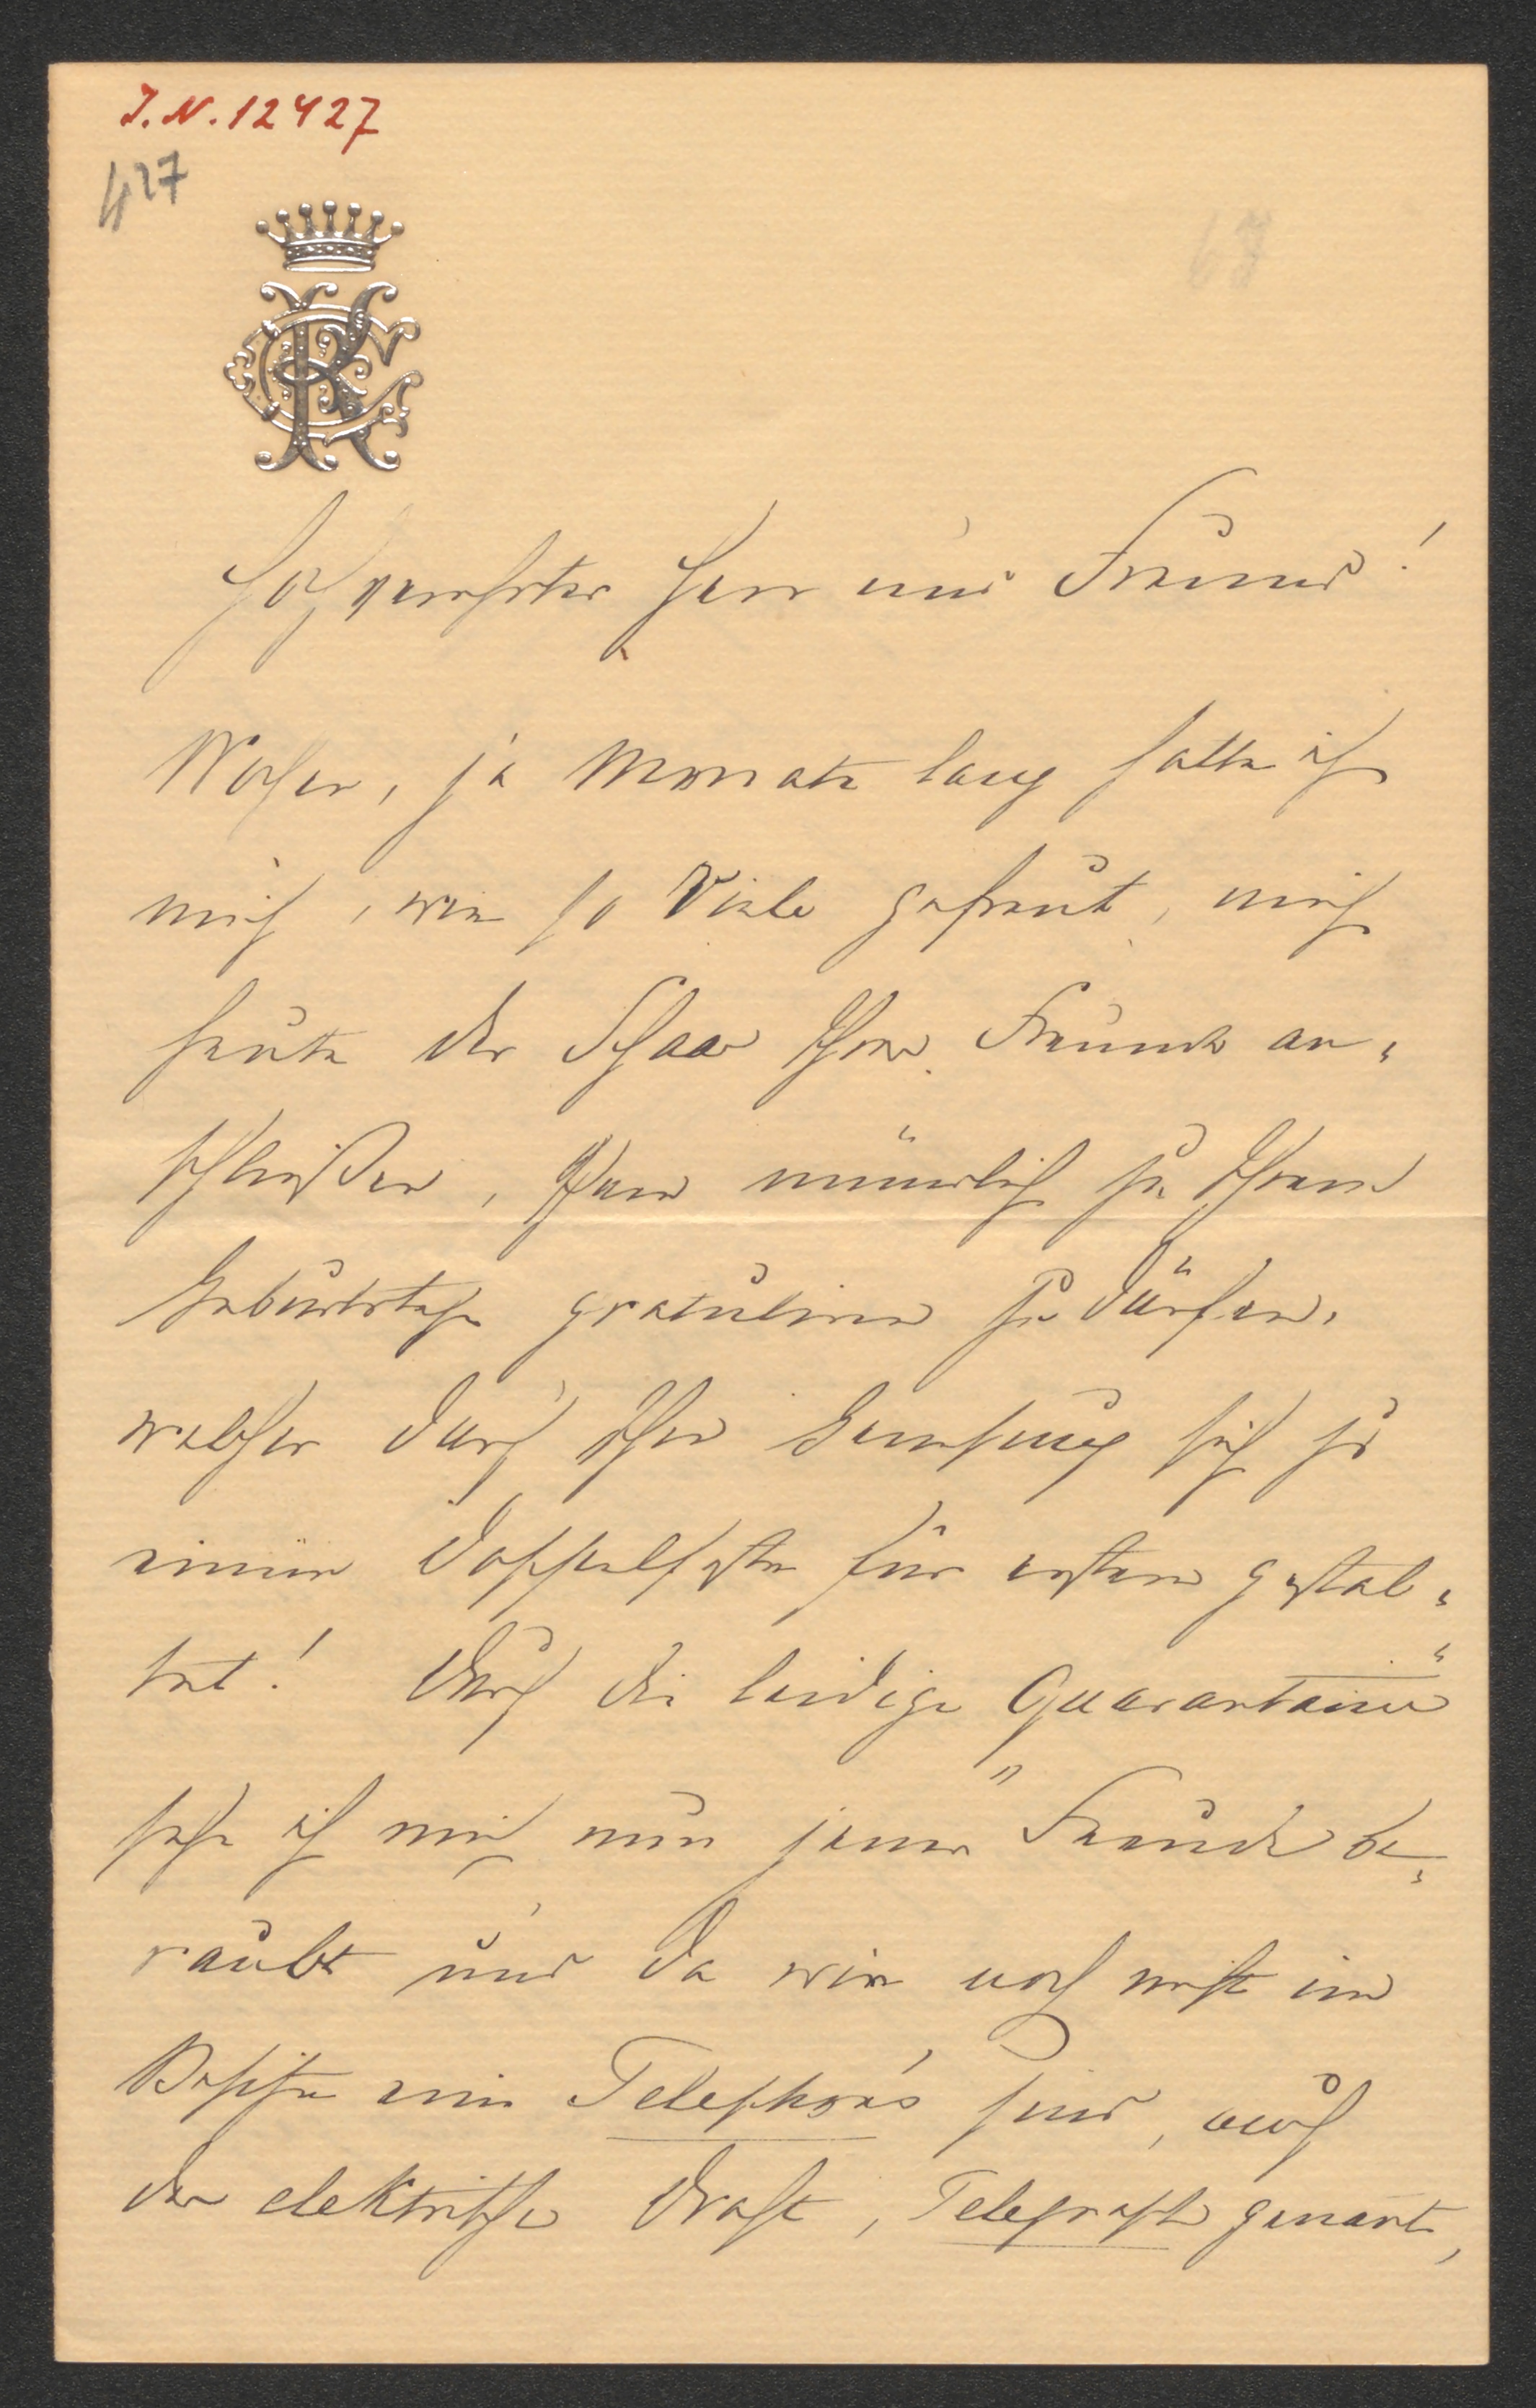 I.N. 12427
427
67
Hochverehrter Herr und Freund!
Wochen, ja Monate lang hatte ich
mich, wie so Viele gefreut, mich
heute der Schaar Ihrer Freunde an-
schließen, Ihnen mündlich zu Ihrem
Geburtstage gratuliren zu dürfen,
welcher durch Ihre Genesung sich zu
einem Doppelfeste für gestal-
tet! Durch die leidige "Quarantaine"
sehe ich mich nun jener Freude be-
raubt und da wir noch nicht im
Besitze eines Telephons sind, auch
der elektrische Draht, Telegraph genant,